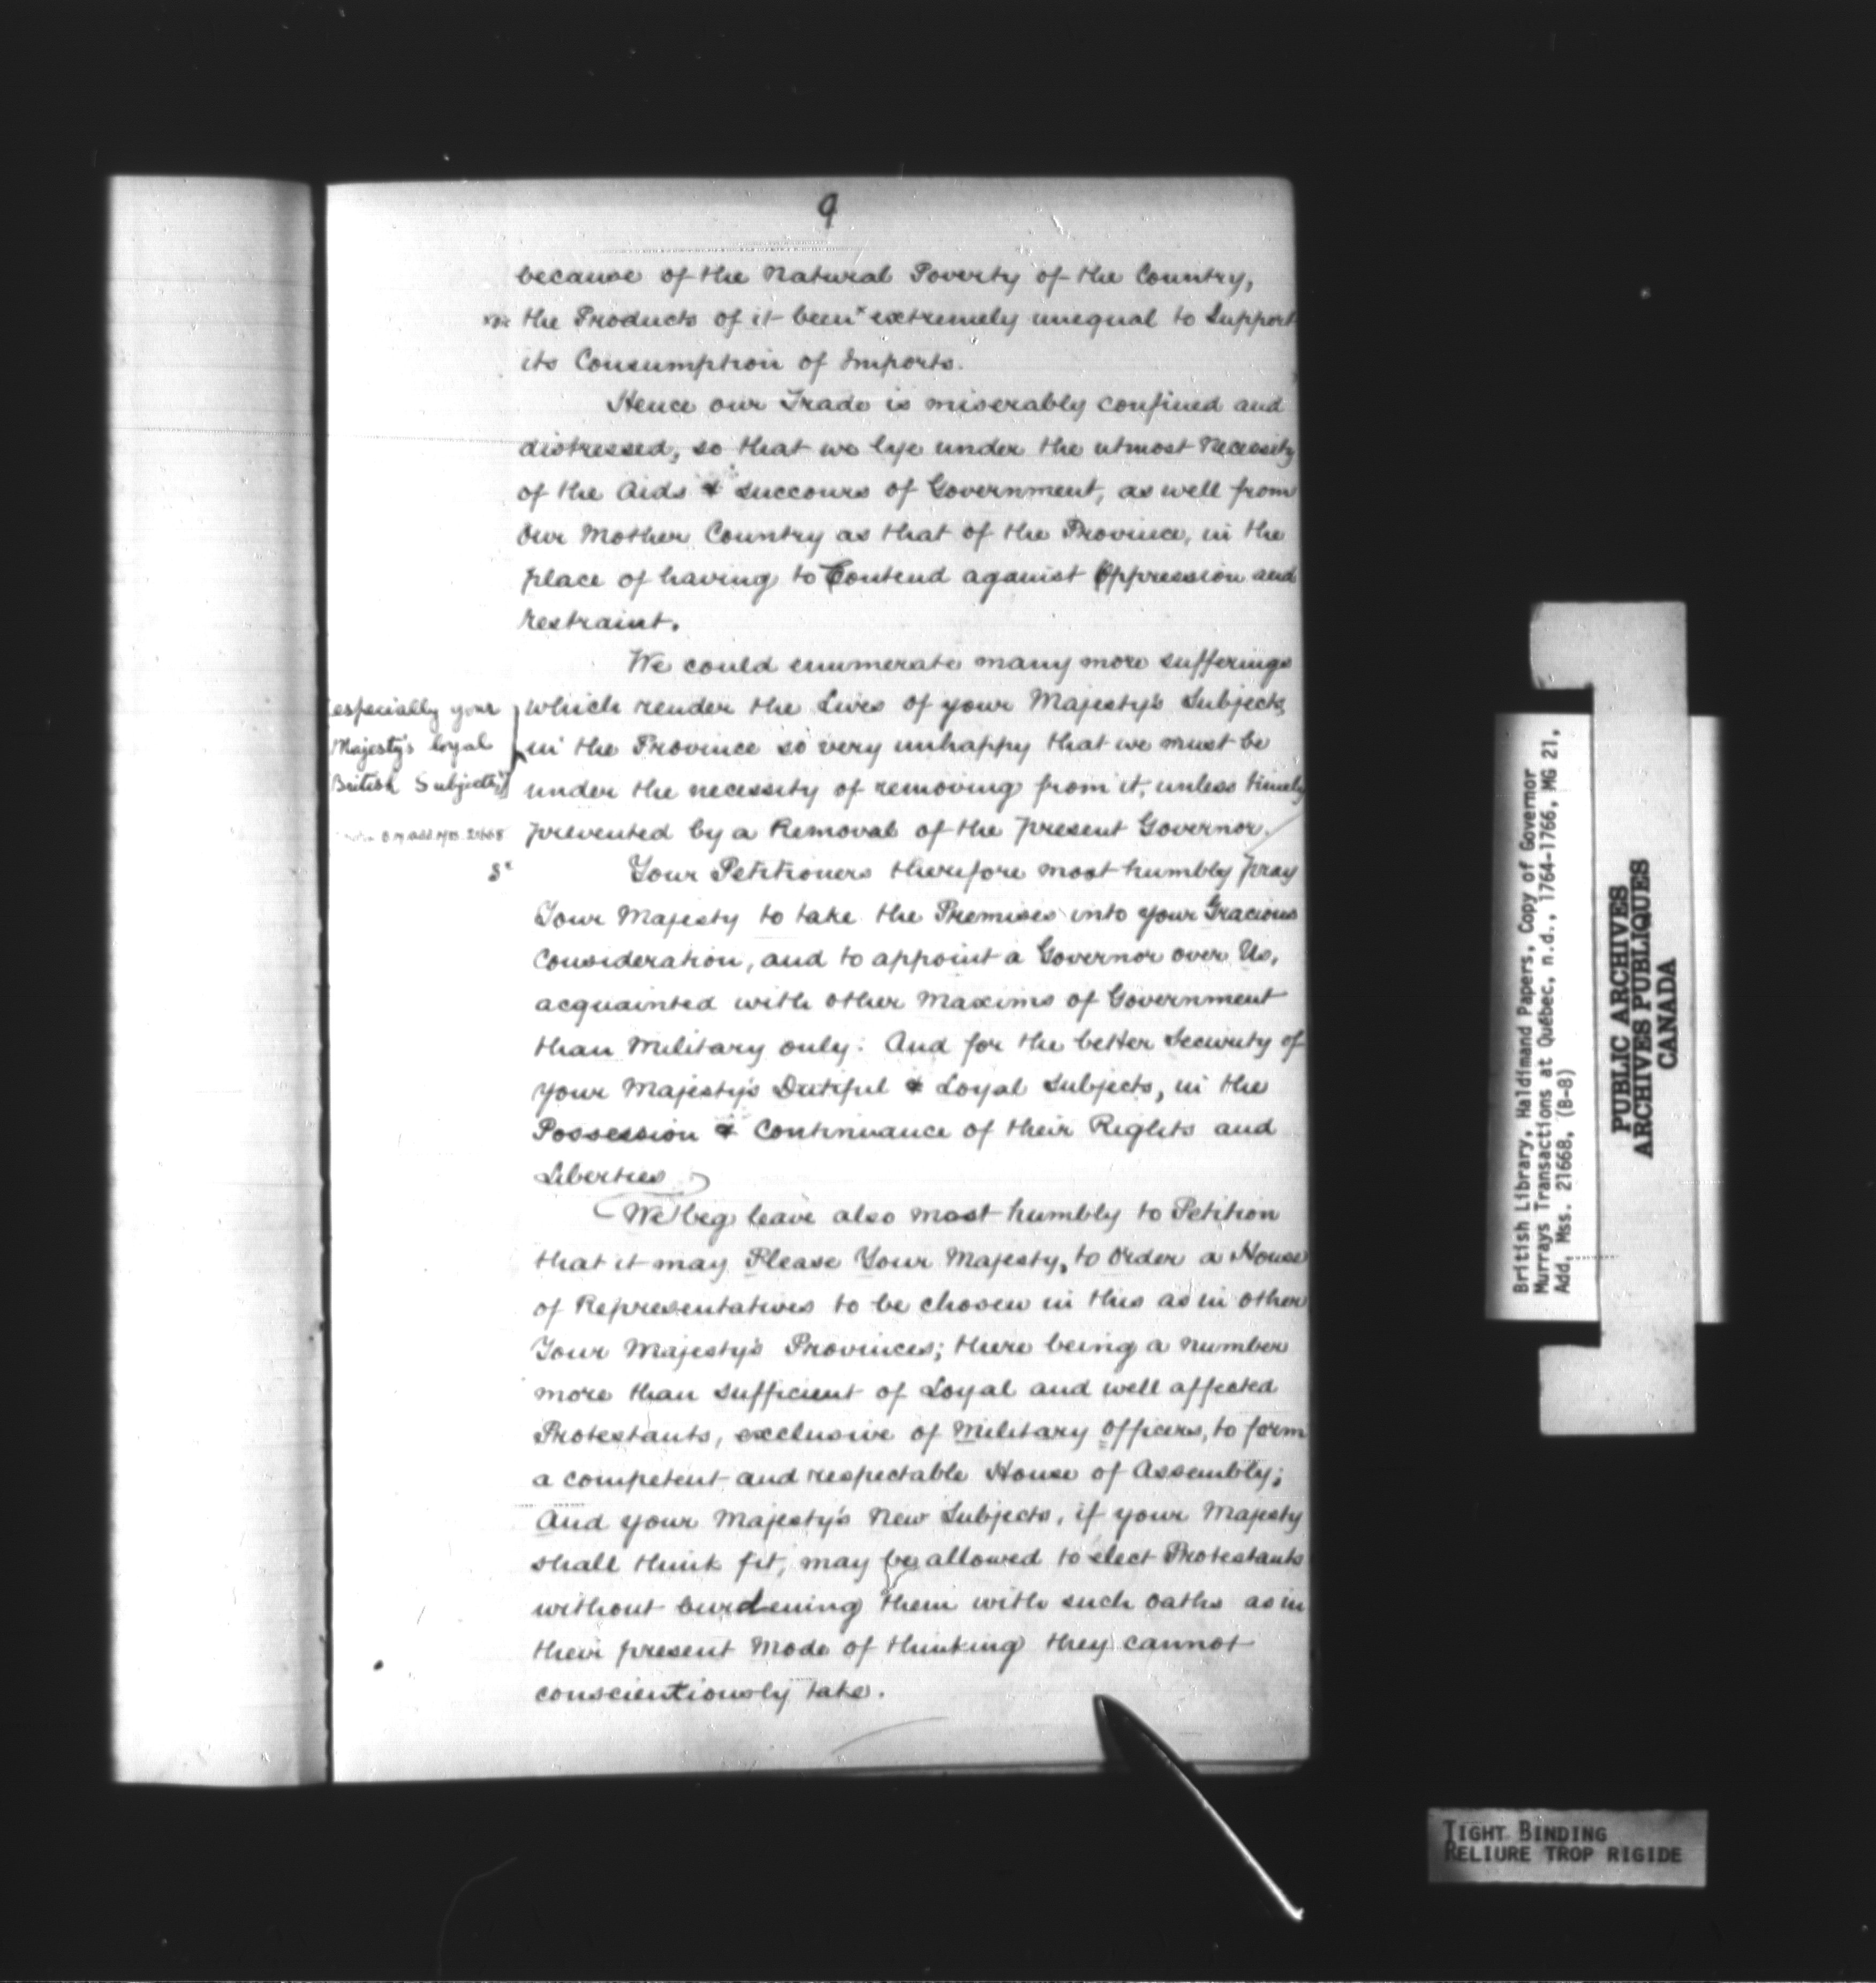 9
because of the Natural Poverty of the Country,
the Products of it been x extremely unequal to Support
its Consumption of Imports.
Hence our Trade is miserably confined and
distressed, so that we lye under the utmost Necessity
of the Aids & Succours of Government, as well from
Our Mother Country as that of the Province, in the
place of having to Contend against Oppression and
restraint.
We could enumerate many more sufferings
which render the Lives of your Majesty's Subjects,
in the Province so very unhappy that we must be
under the necessity of removing from it, unless timely
prevented by a Removal of the present Governor.
especially your
Majesty's loyal
British Subjects
Add Mss. 21668
Your Petitioners therefore most humbly pray
Your Majesty to take the Premises into your Gracious
Consideration, and to appoint a Governor over Us,
acquainted with other Maxims of Government
than Military only: And for the better Security of
your Majesty's Dutiful & Loyal Subjects, in the
Possession & Continuance of their Rights and
Liberties
We beg leave also most humbly to Petition
that it may Please Your Majesty, to Order a House
of Representatives to be chosen in this as in other
Your Majesty's Provinces; there being a number
more than Sufficient of Loyal and well affected
Protestants, exclusive of Military Officers, to form
a competent and respectable House of Assembly;
And your Majesty's New Subjects, if your Majesty
shall think fit, may be allowed to elect Protestants
without burdening them with such oaths as in
their present Mode of thinking they cannot
conscientiously take.
British Library, Haldimand Papers, Copy of Governor
Murrays Transactions at Québec, n.d., 1764-1766, MG 21,
Add. Mss. 21668, (B-8)
PUBLIC ARCHIVES
ARCHIVES PUBLIQUES
CANADA
TIGHT BINDING
RELIURE TROP RIGIDE